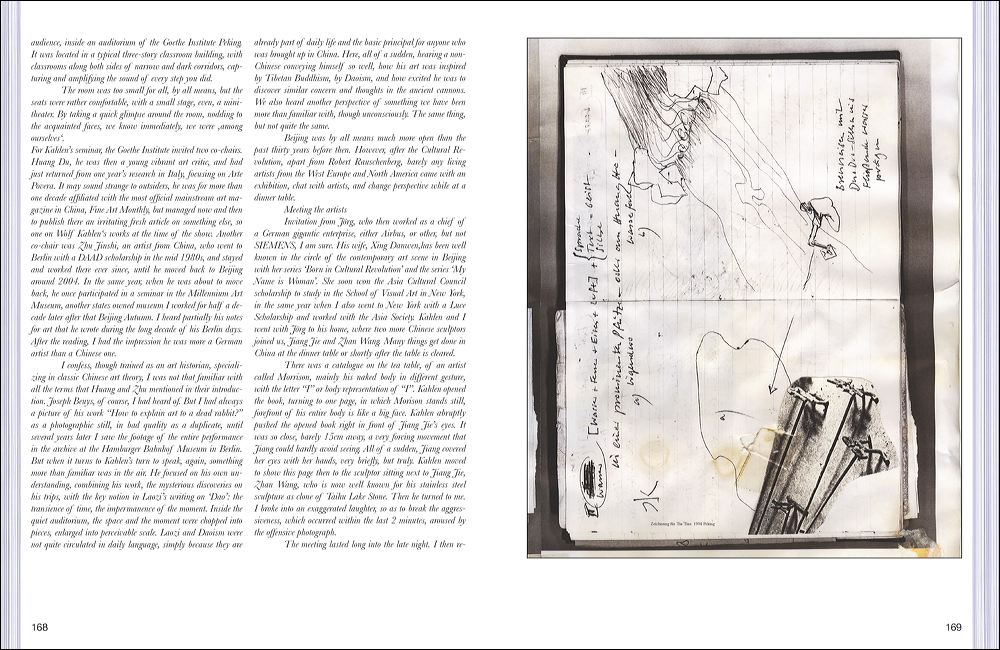 audience, inside an auditorium of the Goethe Institute Peking.
It was located in a typical three-story classroom building, with
classrooms along both sides of narrow and dark corridors, cap-
turing and amplifying the sound of every step you did.
The room was too small for all, by all means, but the
seats were rather comfortable, with a small stage, even, a mini-
theater. By taking a quick glimpse around the room, nodding to
the acquainted faces, we know immediately, we were ‚among
ourselves‘.
For Kahlen's seminar, the Goethe Institute invited two co-chairs.
Huang Du, he was then a young vibrant art critic, and had
just returned from one year's research in Italy, focusing on Arte
Povera. It may sound strange to outsiders, he was for more than
one decade affiliated with the most official mainstream art ma-
gazine in China, Fine Art Monthly, but managed now and then
to publish there an irritating fresh article on something else, so
one on Wolf Kahlen's works at the time of the show. Another
co-chair was Zhu Jinshi, an artist from China, who went to
Berlin with a DAAD scholarship in the mid 1980s, and stayed
and worked there ever since, until he moved back to Beijing
around 2004. In the same year, when he was about to move
back, he once participated in a seminar in the Millennium Art
Museum, another states owned museum I worked for half a de-
cade later after that Beijing Autumn. I heard partially his notes
for art that he wrote during the long decade of his Berlin days.
After the reading, I had the impression he was more a German
artist than a Chinese one.
I confess, though trained as an art historian, speciali-
zing in classic Chinese art theory, I was not that familiar with
all the terms that Huang and Zhu mentioned in their introduc-
tion. Joseph Beuys, of course, I had heard of. But I had always
a picture of his work “How to explain art to a dead rabbit?”
as a photographic still, in bad quality as a duplicate, until
several years later I saw the footage of the entire performance
in the archive at the Hamburger Bahnhof Museum in Berlin.
But when it turns to Kahlen's turn to speak, again, something
more than familiar was in the air. He focused on his own un-
derstanding, combining his work, the mysterious discoveries on
his trips, with the key notion in Laozi's writing on ‘Dao’: the
transience of time, the impermanence of the moment. Inside the
quiet auditorium, the space and the moment were chopped into
pieces, enlarged into perceivable scale. Laozi and Daoism were
not quite circulated in daily language, simply because they are
already part of daily life and the basic principal for anyone who
was brought up in China. Here, all of a sudden, hearing a non-
Chinese conveying himself so well, how his art was inspired
by Tibetan Buddhism, by Daoism, and how excited he was to
discover similar concern and thoughts in the ancient cannons.
We also heard another perspective of something we have been
more than familiar with, though unconsciously. The same thing,
but not quite the same.
Beijing was by all means much more open than the
past thirty years before then. However, after the Cultural Re-
volution, apart from Robert Rauschenberg, barely any living
artists from the West Europe and North America came with an
exhibition, chat with artists, and change perspective while at a
dinner table.
Meeting the artists
Invitation from Jörg, who then worked as a chief of
a German gigantic enterprise, either Airbus, or other, but not
SIEMENS, I am sure. His wife, Xing Danwen,has been well
known in the circle of the contemporary art scene in Beijing
with her series ‘Born in Cultural Revolution’ and the series ‘My
Name is Woman’. She soon won the Asia Cultural Council
scholarship to study in the School of Visual Art in New York,
in the same year when I also went to New York with a Luce
Scholarship and worked with the Asia Society. Kahlen and I
went with Jörg to his home, where two more Chinese sculptors
joined us, Jiang Jie and Zhan Wang. Many things get done in
China at the dinner table or shortly after the table is cleared.
There was a catalogue on the tea table, of an artist
called Morrison, mainly his naked body in different gesture,
with the letter “I” or body representation of “I”. Kahlen opened
the book, turning to one page, in which Morison stands still,
forefront of his entire body is like a big face. Kahlen abruptly
pushed the opened book right in front of Jiang Jie's eyes. It
was so close, barely 15cm away, a very forcing movement that
Jiang could hardly avoid seeing. All of a sudden, Jiang covered
her eyes with her hands, very briefly, but truly. Kahlen moved
to show this page then to the sculptor sitting next to Jiang Jie,
Zhan Wang, who is now well known for his stainless steel
sculpture as clone of Taihu Lake Stone. Then he turned to me.
I broke into an exaggerated laughter, so as to break the aggres-
siveness, which occurred within the last 2 minutes, aroused by
the offensive photograph.
The meeting lasted long into the late night. I then re-
168
Zeichnung für Tia Tian 1994 Peking
169